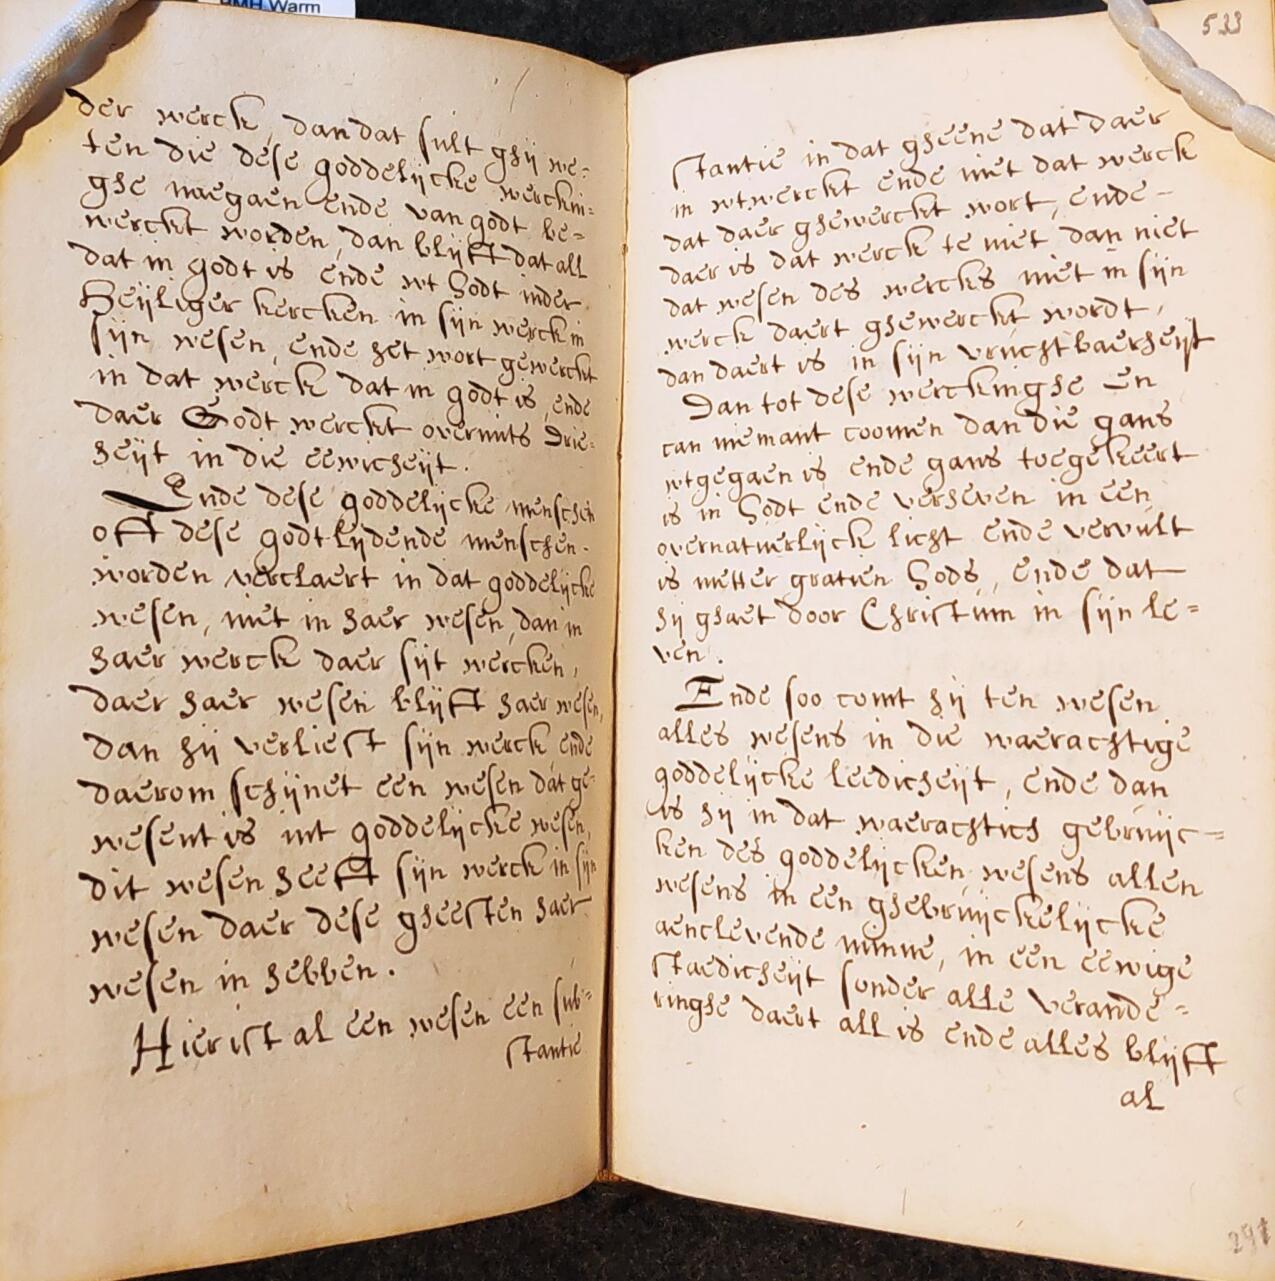 BMH Warm
der werck, dan dat sult ghij we=
ten die dese goddelijcke werckin=
ghe naegaen ende van godt be=
werckt worden, dan blijft dat all
dat in godt is ende wt Godt inder
Heijliger kercken in sijn werck in
sijn wesen, ende het wort gewerckt
in dat werck dat in godt is, ende
daer Godt werckt overmits Drie=
heijt in die eewicheijt.
Ende dese goddelijcke menschen
oft dese godtlijdende menschen.
worden verclaert in dat goddelijcke
wesen, niet in haer wesen, dan in
haer werck daer sijt wercken,
daer haer wesen blijft haer wesen,
dan hij verliest sijn werck ende
daerom schijnet een wesen dat ge=
wesent is int goddelijcke wesen,
dit wesen heeft sijn werck in sijn
wesen daer dese gheesten haer
wesen in hebben.
Hier ist al een wesen een sub=
stantie
533
stantie in dat gheene dat daer
in wtwerckt ende niet dat werck
dat daer ghewerckt wort, ende-
daer is dat werck te niet dan niet
dat wesen des wercks niet in sijn
werck daert ghewerckt wordt,
dan daert is in sijn vruchtbaerheijt
Dan tot dese werckinghe en
can niemant coomen dan die gans
wtgegaen is ende gans toegekeert
is in Godt ende verheven in een
overnatuerlijck licht ende vervult
is metter gratien Gods, ende dat
hij ghaet door Christum in sijn le=
ven.
Ende soo comt hij ten wesen
alles wesens in die waerachtige
goddelijcke leedicheijt, ende dan
is hij in dat waerachtich gebruijc=
ken des goddelijcken wesens allen
wesens in een ghebruijckelijcke
aenclevende minne, in een eewige
staedicheijt sonder alle verande=
ringhe daert all is ende alles blijft
al
291